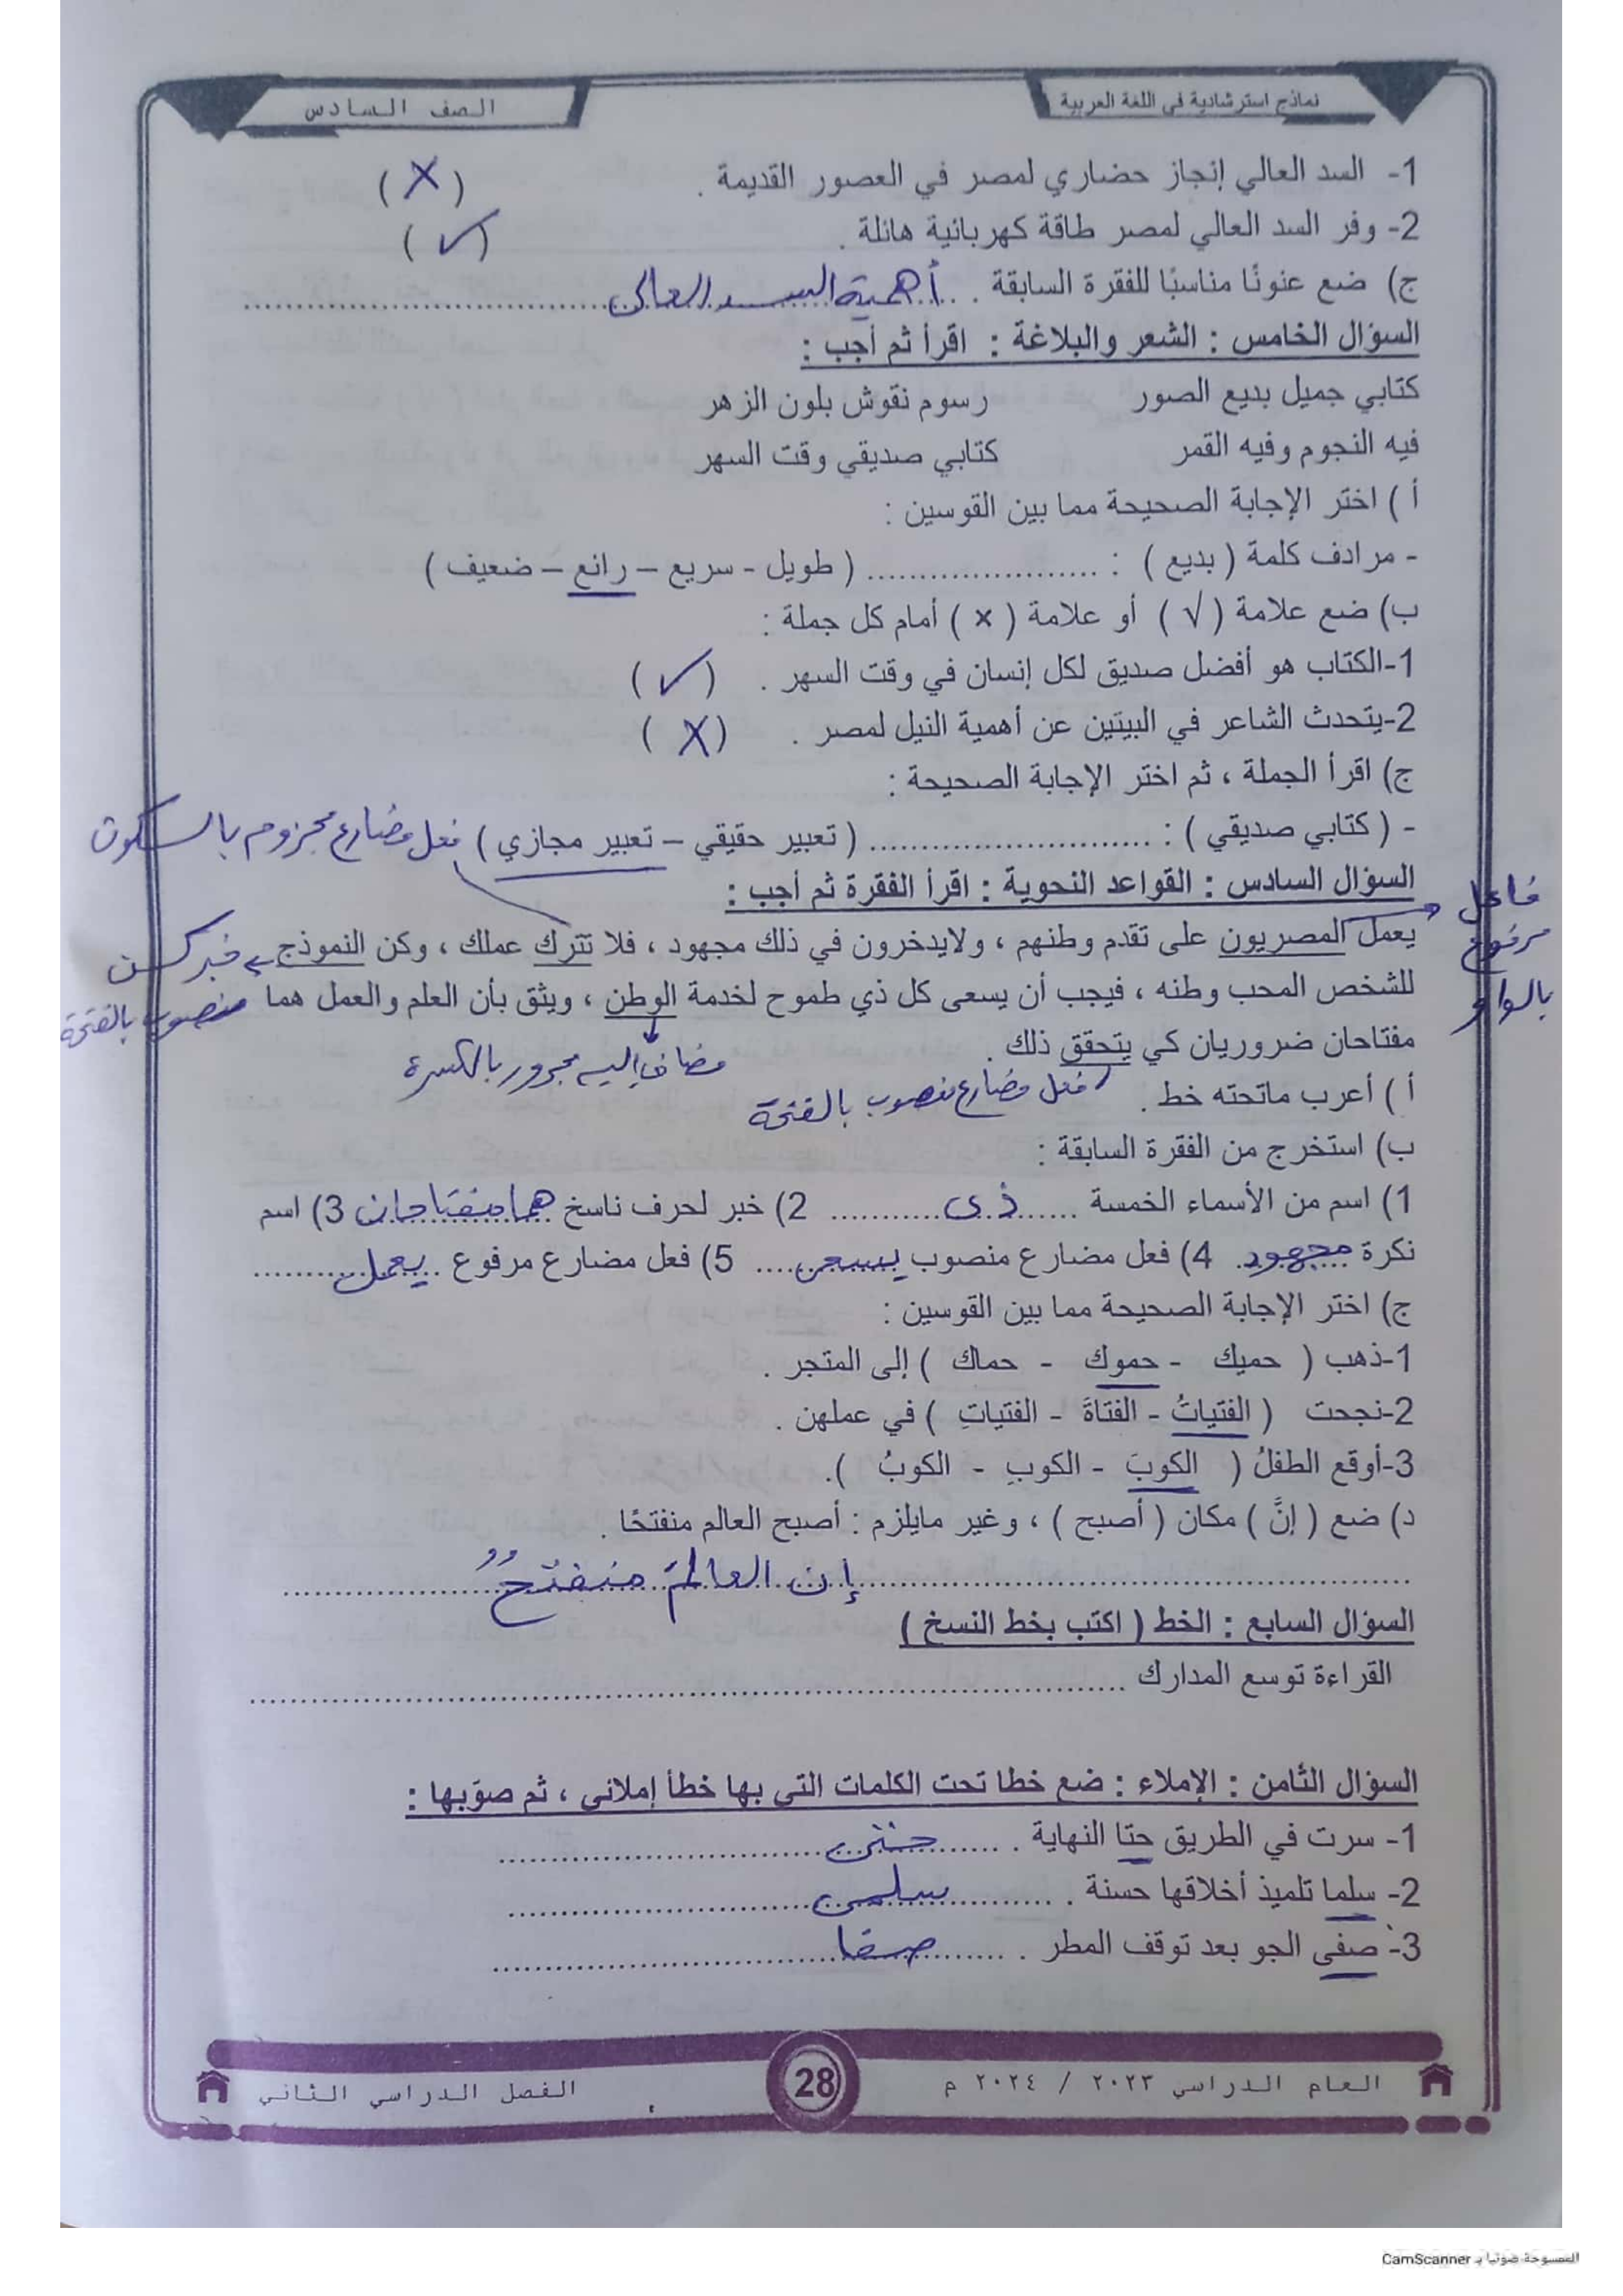 نماذج استرشادية في اللغة العربية
الصف السادس
1- السد العالي إنجاز حضاري لمصر في العصور القديمة . ( X )
2- وفر السد العالي لمصر طاقة كهربائية هائلة . ( ✓ )
ج) ضع عنونًا مناسبًا للفقرة السابقة . أهمية السد العالى
السؤال الخامس : الشعر والبلاغة : اقرأ ثم أجب :
كتابي جميل بديع الصور رسوم نقوش بلون الزهر
فيه النجوم وفيه القمر كتابي صديقي وقت السهر
أ ) اختر الإجابة الصحيحة مما بين القوسين :
- مرادف كلمة ( بديع ) : ...................... ( طويل - سريع – رائع – ضعيف )
ب) ضع علامة ( √ ) أو علامة ( × ) أمام كل جملة :
1-الكتاب هو أفضل صديق لكل إنسان في وقت السهر . ( ✓ )
2-يتحدث الشاعر في البيتين عن أهمية النيل لمصر . ( X )
ج) اقرأ الجملة ، ثم اختر الإجابة الصحيحة :
- ( كتابي صديقي ) : ............................ ( تعبير حقيقي – تعبير مجازي ) فعل مضارع مجزوم بالسكون
السؤال السادس : القواعد النحوية : اقرأ الفقرة ثم أجب :
فاعل مرفوع بالواو
يعمل المصريون على تقدم وطنهم ، ولايدخرون في ذلك مجهود ، فلا تترك عملك ، وكن النموذج خبر كن
للشخص المحب وطنه ، فيجب أن يسعى كل ذي طموح لخدمة الوطن ، ويثق بأن العلم والعمل هما منصوب بالفتحة
مفتاحان ضروريان كي يتحقق ذلك . مضاف إليه مجرور بالكسرة
أ ) أعرب ماتحته خط . فعل مضارع منصوب بالفتحة
ب) استخرج من الفقرة السابقة :
1) اسم من الأسماء الخمسة ......ذى........... 2) خبر لحرف ناسخ هما مفتاحان 3) اسم
نكرة مجهود 4) فعل مضارع منصوب يسعى.... 5) فعل مضارع مرفوع يعمل
ج) اختر الإجابة الصحيحة مما بين القوسين :
1-ذهب ( حميك - حموك - حماك ) إلى المتجر .
2-نجحت ( الفتياتُ - الفتاةَ - الفتياتِ ) في عملهن .
3-أوقع الطفلُ ( الكوبَ - الكوبِ - الكوبُ ).
د) ضع ( إنَّ ) مكان ( أصبح ) ، وغير مايلزم : أصبح العالم منفتحًا .
إن العالمَ منفتحٌ
السؤال السابع : الخط ( اكتب بخط النسخ )
القراءة توسع المدارك ..............................
السؤال الثامن : الإملاء : ضع خطا تحت الكلمات التي بها خطأ إملائي ، ثم صوّبها :
1- سرت في الطريق حتا النهاية . حتى
2- سلما تلميذ أخلاقها حسنة . سلمى
3- صفى الجو بعد توقف المطر . صفا
العام الدراسي ٢٠٢٣ / ٢٠٢٤ م
28
الفصل الدراسي الثاني
الممسوحة ضوئيا بـ CamScanner